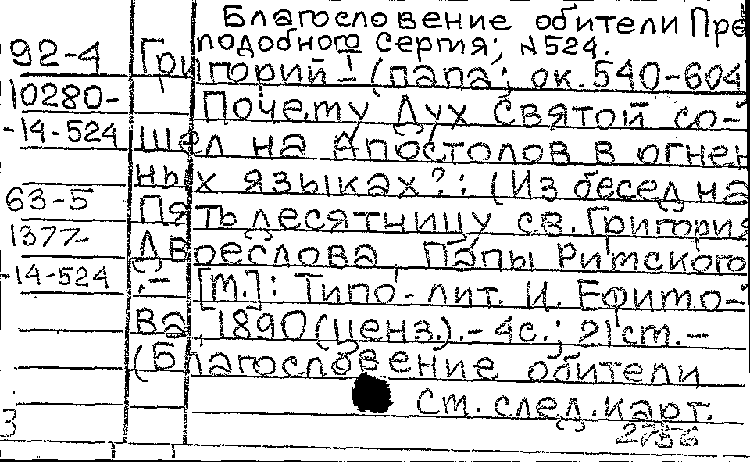 Благословение обители Пре
подобного Сергия; №524.
92-4 Григорий I (папа; ок. 540-604
10280- Почему Дух Святой со-
-14-524 шел на Апостолов в огнен
ных языках?: (Из бесед на
63-5 Пятьдесятницу св. Григория
1377- Двоеслова, Папы Римского
-14-524 .- [М.]: Типо-лит. И. Ефимо-
ва, 1890 (ценз.).- 4с.; 21 см.-
(Благословение обители
См. след. карт.
3 2756